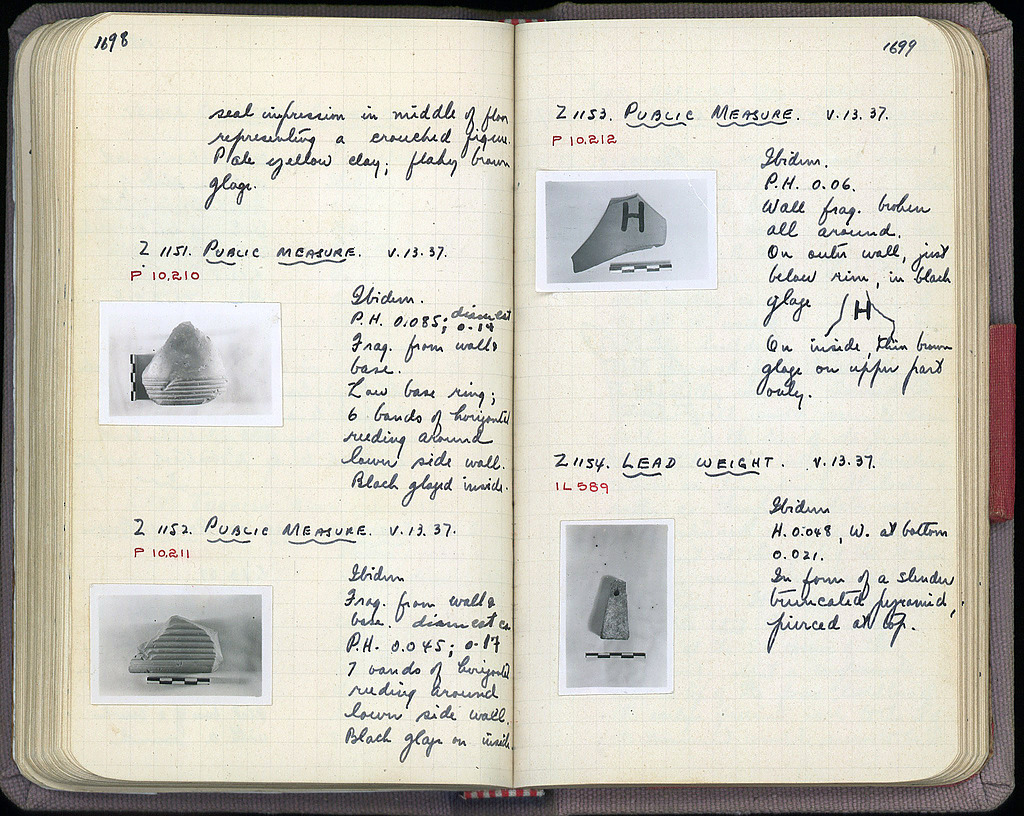 1698
seal impression in middle of floor
representing a crouched figure.
Pale yellow clay; flaky brown
glaze.
Z 1151. PUBLIC MEASURE. V.13.37.
P 10,210
Ibidem.
P.H. 0.085; diam est
0.14
Frag. from wall &
base.
Low base ring;
6 bands of horizontal
reeding around
lower side wall.
Black glazed inside.
Z 1152. PUBLIC MEASURE. V.13.37.
P 10,211
Ibidem
Frag. from wall &
base. diam est ca
P.H. 0.045; 0.17
7 bands of horizontal
reeding around
lower side wall.
Black glaze on inside
1699
Z 1153. PUBLIC MEASURE. V.13.37.
P 10,212
Ibidem.
P.H. 0.06.
Wall frag. broken
all around.
On outer wall, just
below rim, in black
glaze H
On inside, thin brown
glaze on upper part
only.
H
Z 1154. LEAD WEIGHT. V.13.37.
IL 589
Ibidem
H. 0.048, W. at bottom
0.021.
In form of a slender
truncated pyramid,
pierced at top.